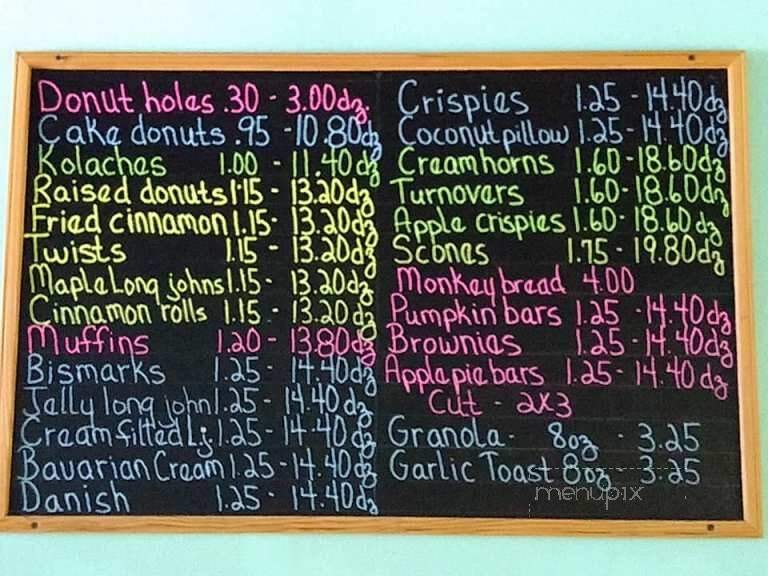 Donut holes .30 - 3.00dz.
Cake donuts .95 - 10.80dz
Kolaches 1.00 - 11.40dz
Raised donuts 1.15 - 13.20dz
Fried cinnamon 1.15 - 13.20dz
Twists 1.15 - 13.20dz
Maple Long johns 1.15 - 13.20dz
Cinnamon rolls 1.15 - 13.20dz
Muffins 1.20 - 13.80dz
Bismarks 1.25 - 14.40dz
Jelly long john 1.25 - 14.40dz
Cream filled L.j. 1.25 - 14.40dz
Bavarian Cream 1.25 - 14.40dz
Danish 1.25 - 14.40dz
Crispies 1.25 - 14.40dz
Coconut pillow 1.25 - 14.40dz
Cream horns 1.60 - 18.60dz
Turnovers 1.60 - 18.60dz
Apple crispies 1.60 - 18.60dz
Scones 1.75 - 19.80dz
Monkey bread 4.00
Pumpkin bars 1.25 - 14.40dz
Brownies 1.25 - 14.40dz
Apple pie bars 1.25 - 14.40dz
Cut - 2x3
Granola - 8oz - 3.25
Garlic Toast 8oz 3.25
menupix